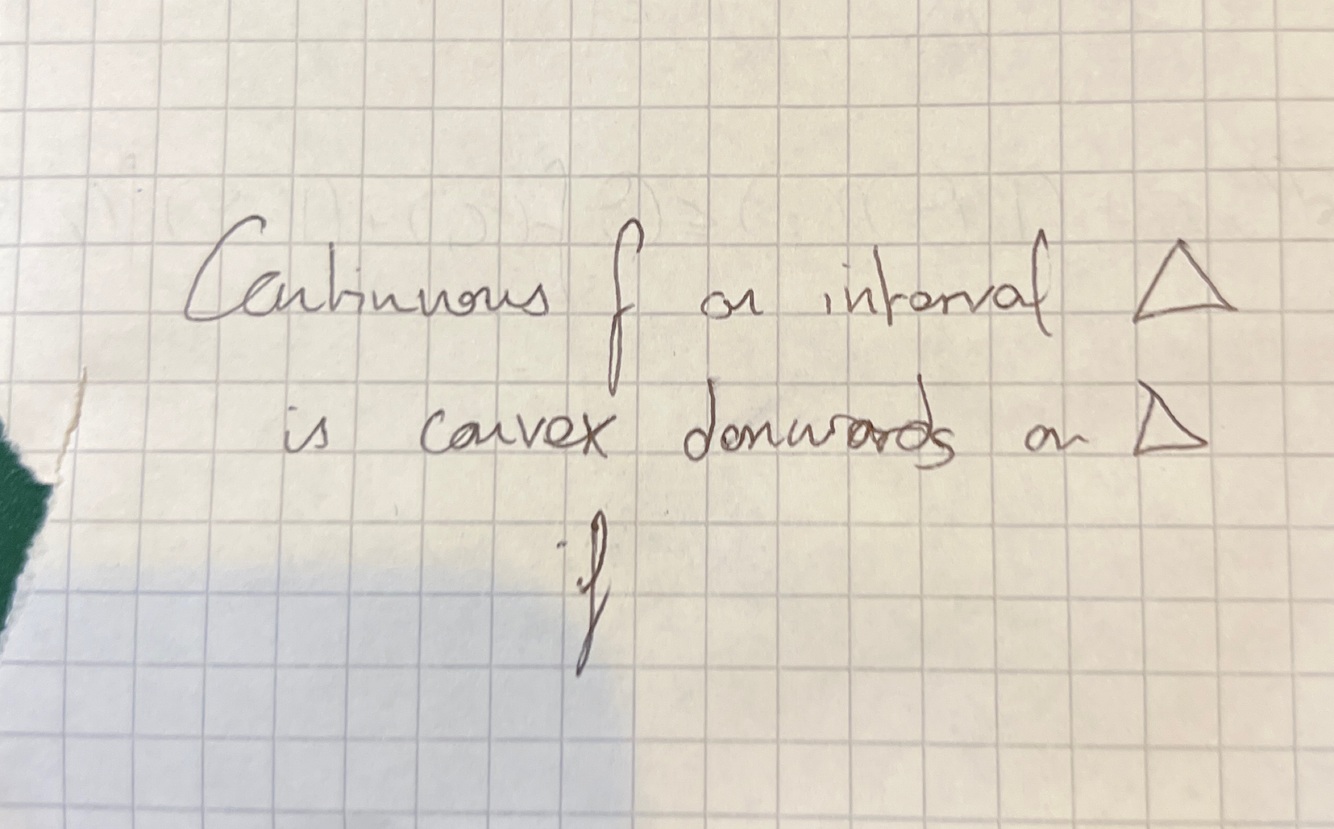 Continuous f on interval Δ
is convex donwards on Δ
if